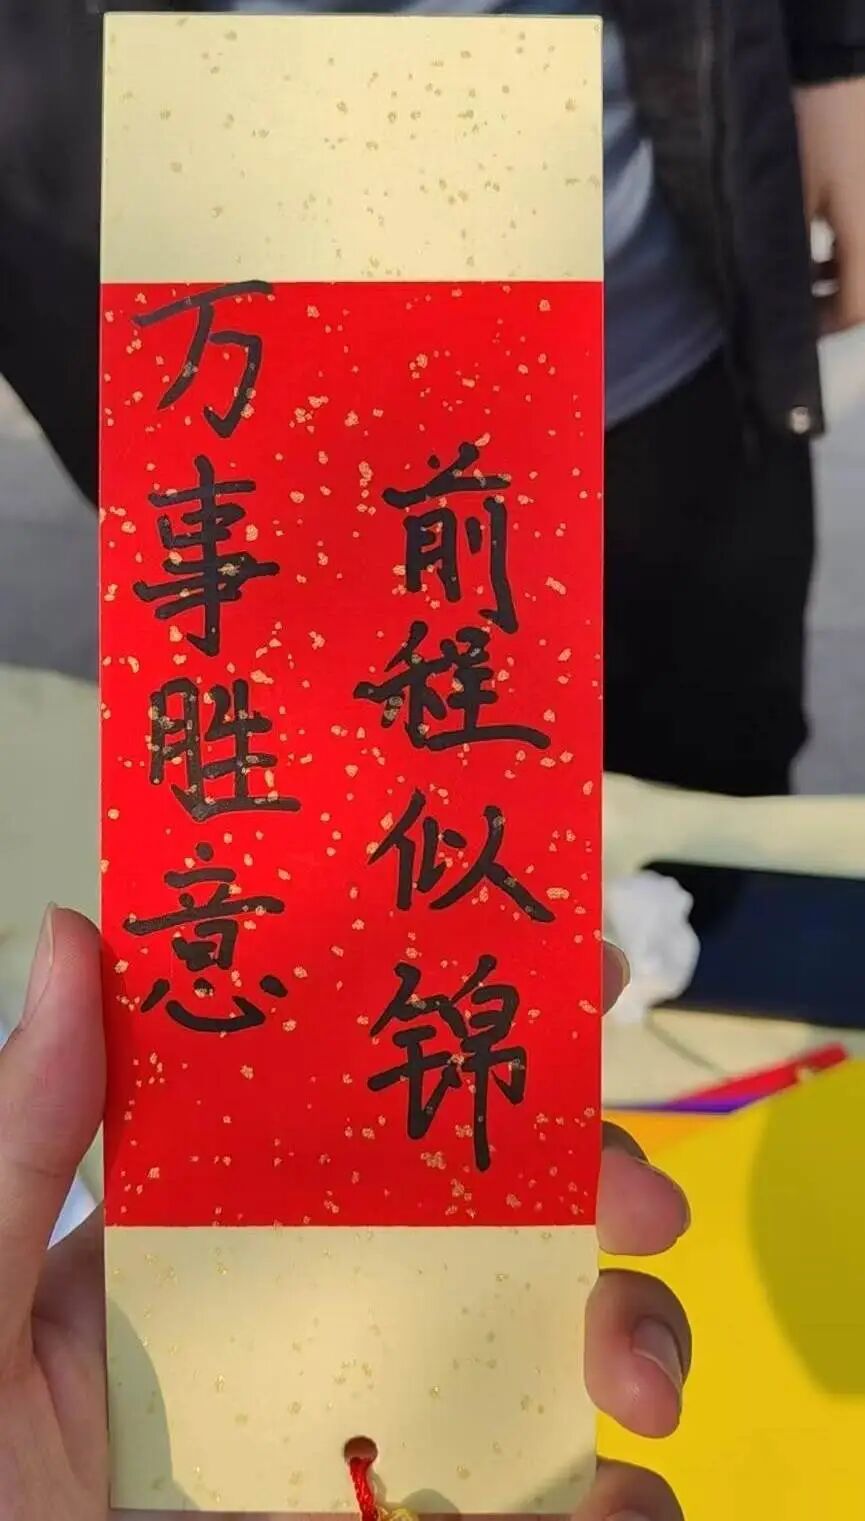 前程似锦
万事胜意